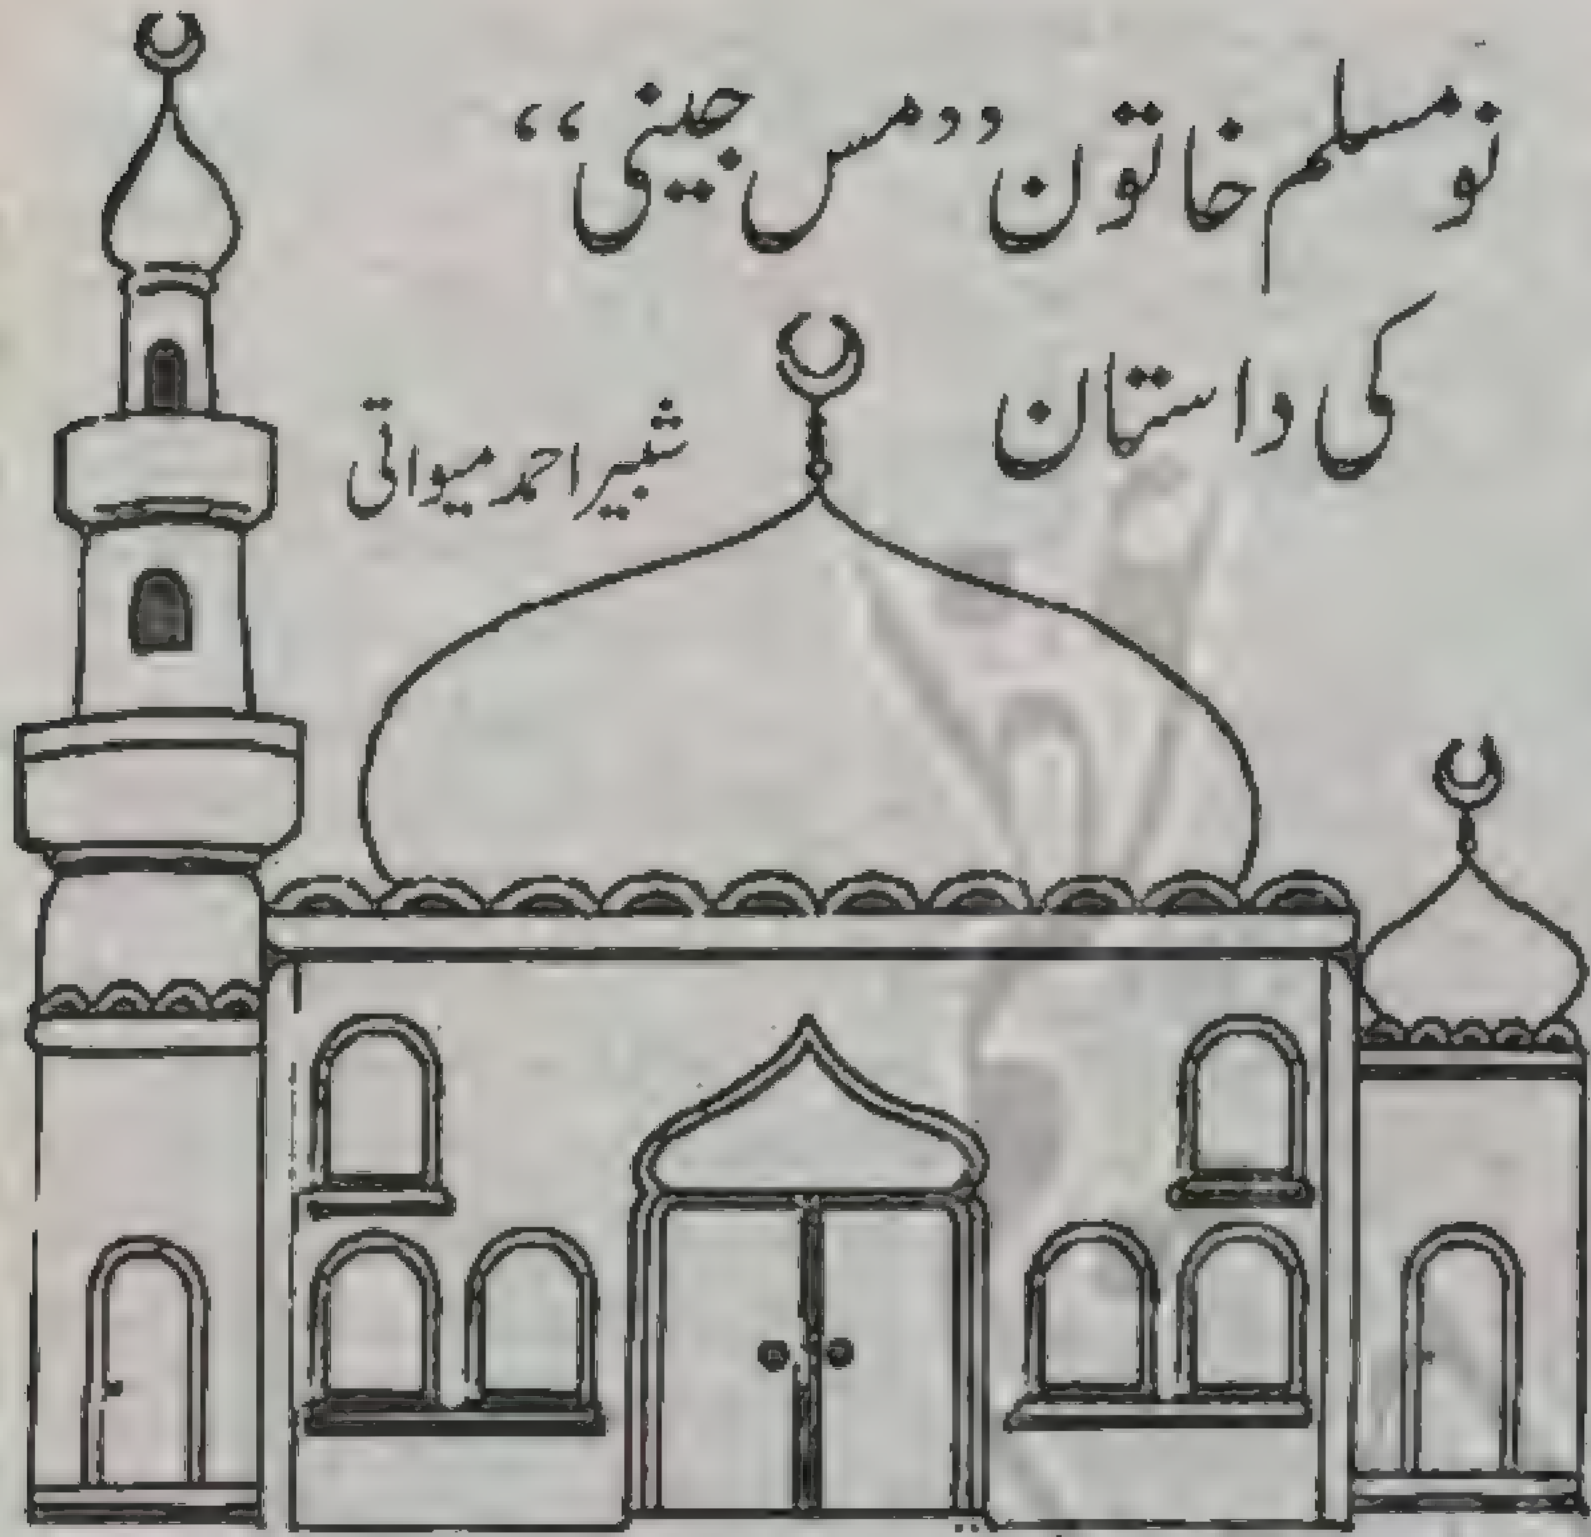 نو مسلم خاتون ”مس جینی“
کی داستان
شبیر احمد میواتی